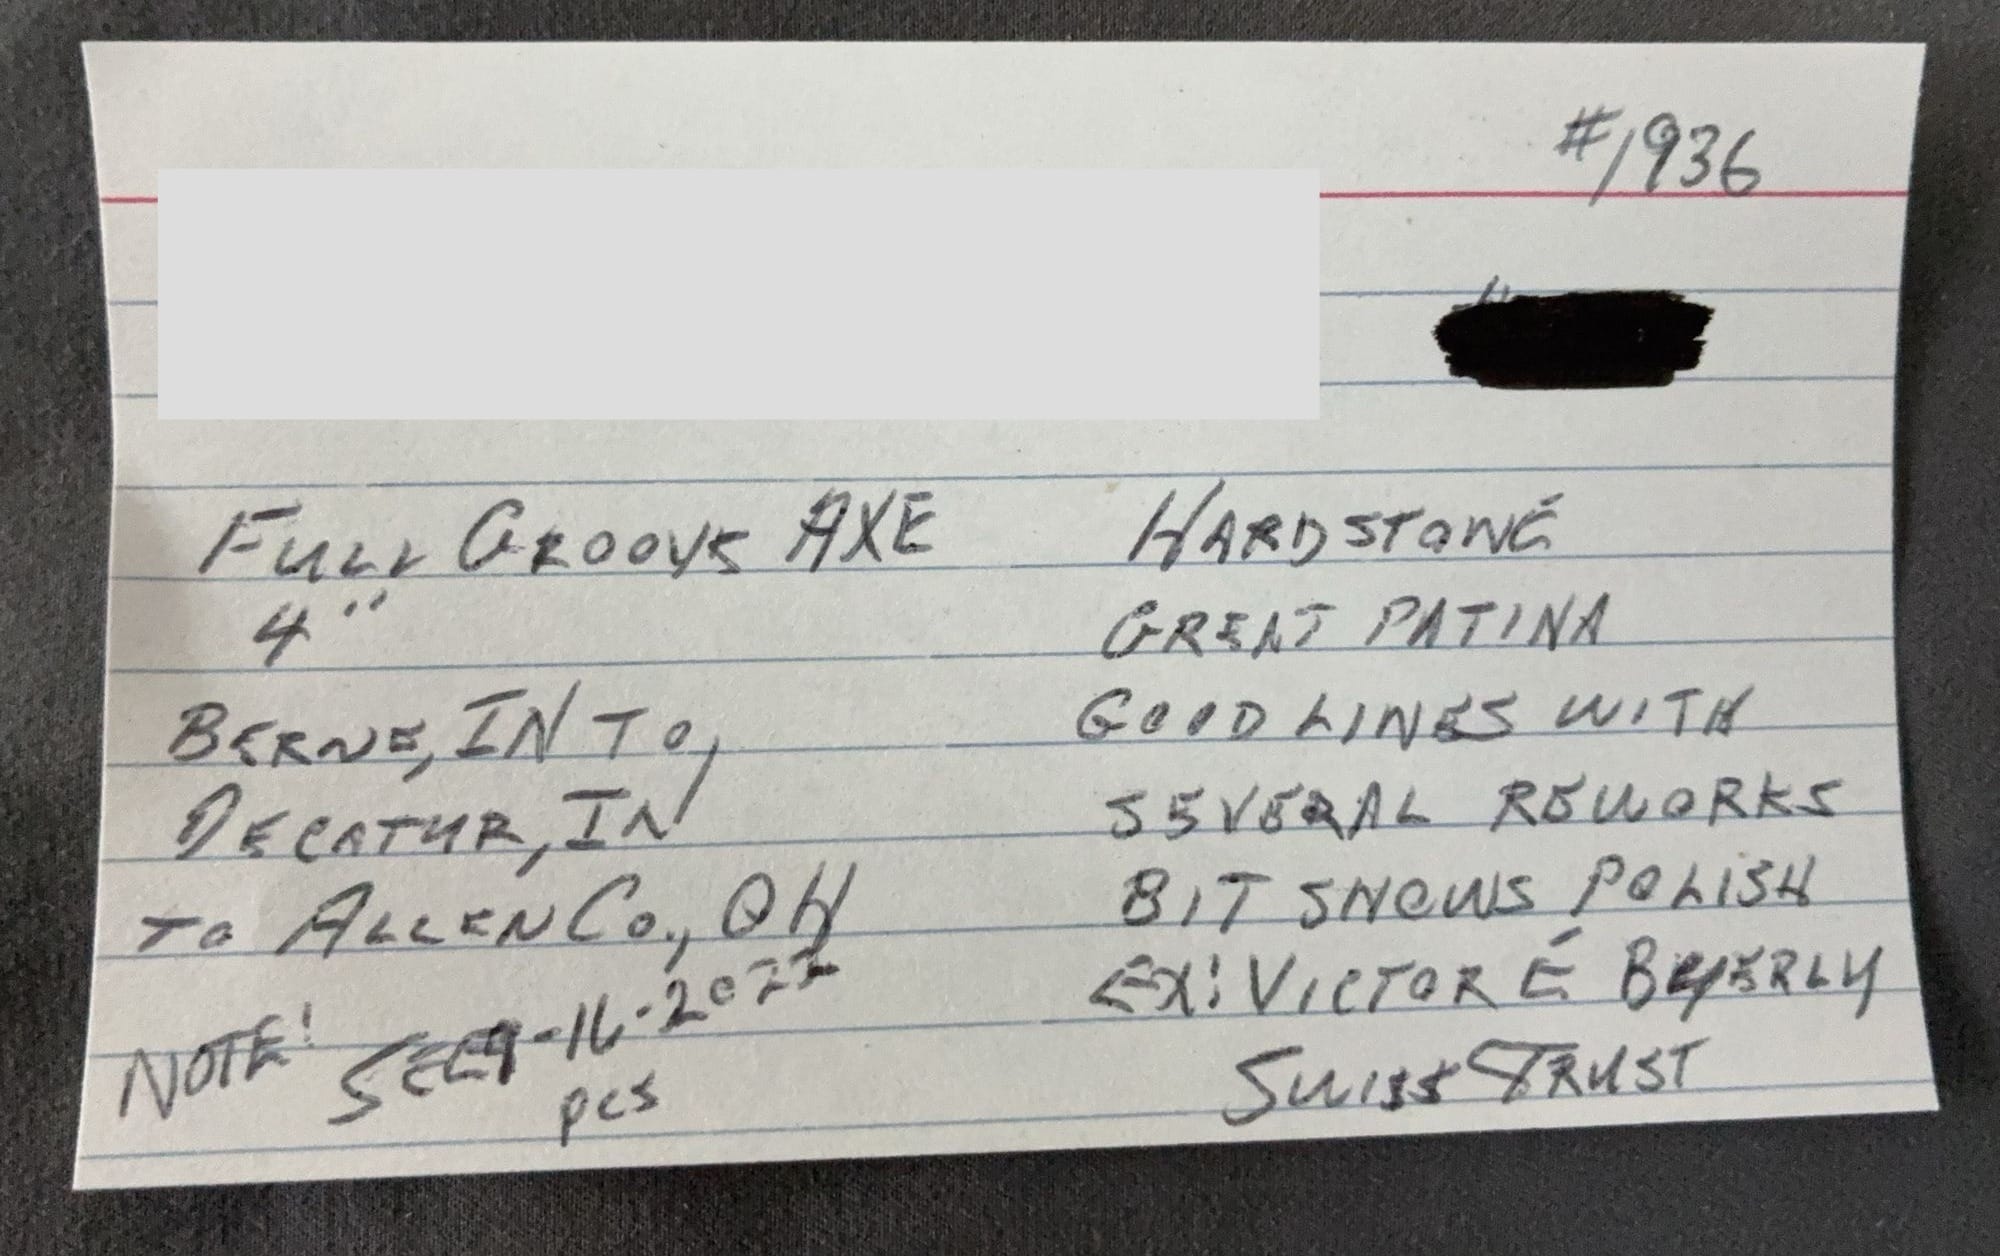 #1936
FULL GROOVE AXE
4"
BERNE, IN TO,
DECATUR, IN
TO ALLEN CO., OH
NOTE! SEE 9-16-2022
pcs
HARDSTONE
GREAT PATINA
GOOD LINES WITH
SEVERAL REWORKS
BIT SHOWS POLISH
EX: VICTOR E BYERLY
SWISS TRUST